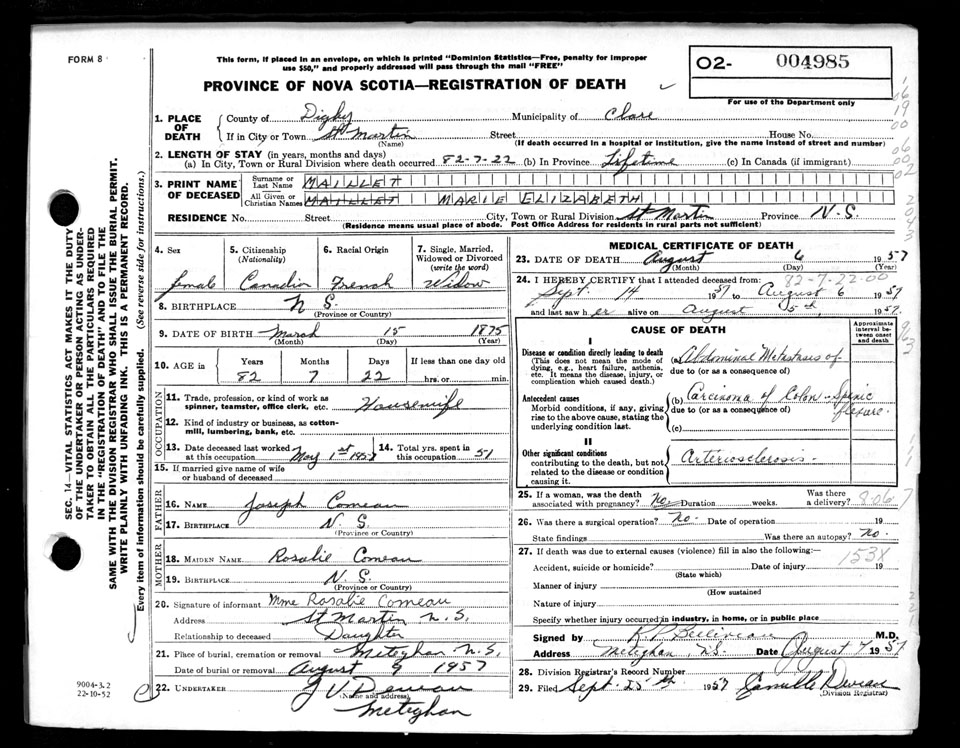 FORM 8
This form, if placed in an envelope, on which is printed "Dominion Statistics—Free, penalty for improper
use $50," and properly addressed will pass through the mail "FREE"
O2- 004985
For use of the Department only
PROVINCE OF NOVA SCOTIA—REGISTRATION OF DEATH
1. PLACE OF DEATH
County of Digby Municipality of Clare
If in City or Town St Martin Street House No.
(Name) (If death occurred in a hospital or institution, give the name instead of street and number)
2. LENGTH OF STAY (in years, months and days)
(a) In City, Town or Rural Division where death occurred 82-7-22 (b) In Province Lifetime (c) In Canada (if immigrant)
3. PRINT NAME OF DECEASED
Surname or Last Name MAILLET
All Given or Christian Names MAILLET MARIE ELIZABETH
RESIDENCE No. Street City, Town or Rural Division St Martin Province N.S.
(Residence means usual place of abode. Post Office Address for residents in rural parts not sufficient)
4. Sex female
5. Citizenship (Nationality) Canadin
6. Racial Origin French
7. Single, Married, Widowed or Divorced (write the word) Widow
8. BIRTHPLACE N S.
(Province or Country)
9. DATE OF BIRTH March 15 1875
(Month) (Day) (Year)
10. AGE in Years 82 Months 7 Days 22 If less than one day old hrs. or min.
OCCUPATION
11. Trade, profession, or kind of work as spinner, teamster, office clerk, etc. Housewife
12. Kind of industry or business, as cotton-mill, lumbering, bank, etc.
13. Date deceased last worked at this occupation May 1st 1957
14. Total yrs. spent in this occupation 51
15. If married give name of wife or husband of deceased
FATHER
16. NAME Joseph Comeau
17. BIRTHPLACE N. S.
(Province or Country)
MOTHER
18. MAIDEN NAME Rosalie Comeau
19. BIRTHPLACE N. S.
(Province or Country)
20. Signature of informant Mme Rosalie Comeau
Address St Martin N.S.
Relationship to deceased Daughter
21. Place of burial, cremation or removal Meteghan N.S.
Date of burial or removal August 9 1957
22. UNDERTAKER J V Deveau
(Name and address)
Meteghan
MEDICAL CERTIFICATE OF DEATH
23. DATE OF DEATH August 6 1957
(Month) (Day) (Year)
82-7-22-00
24. I HEREBY CERTIFY that I attended deceased from:
Sept. 14 1957 to August 6 1957
and last saw her alive on August 5th, 1957.
CAUSE OF DEATH
Approximate interval between onset and death
I
Disease or condition directly leading to death
(This does not mean the mode of dying, e.g., heart failure, asthenia, etc. It means the disease, injury, or complication which caused death.)
(a) Abdominal Metastasis of
due to (or as a consequence of)
Antecedent causes
Morbid conditions, if any, giving rise to the above cause, stating the underlying condition last.
(b) Carcinoma of Colon - Spenic flexure.
due to (or as a consequence of)
(c)
II
Other significant conditions
contributing to the death, but not related to the disease or condition causing it.
Arteriosclerosis.
25. If a woman, was the death associated with pregnancy? No Duration weeks. Was there a delivery?
8.06.7
26. Was there a surgical operation? No. Date of operation 19
State findings Was there an autopsy? No.
27. If death was due to external causes (violence) fill in also the following:—
153X
Accident, suicide or homicide? Date of injury 19
(State which)
Manner of injury
(How sustained
Nature of injury
Specify whether injury occurred in industry, in home, or in public place
Signed by R P Belliveau M.D.
Address Meteghan, N.S. Date August 7 1957
28. Division Registrar's Record Number
29. Filed Sept. 25th 1957 Camille Deveau
(Division Registrar)
SEC. 14—VITAL STATISTICS ACT MAKES IT THE DUTY
OF THE UNDERTAKER OR PERSON ACTING AS UNDER-
TAKER TO OBTAIN ALL THE PARTICULARS REQUIRED
IN THE "REGISTRATION OF DEATH" AND TO FILE THE
SAME WITH THE DIVISION REGISTRAR WHO SHALL ISSUE THE BURIAL PERMIT.
WRITE PLAINLY WITH UNFADING INK. THIS IS A PERMANENT RECORD.
Every item of information should be carefully supplied. (See reverse side for instructions.)
9004-3.2
22-10-52